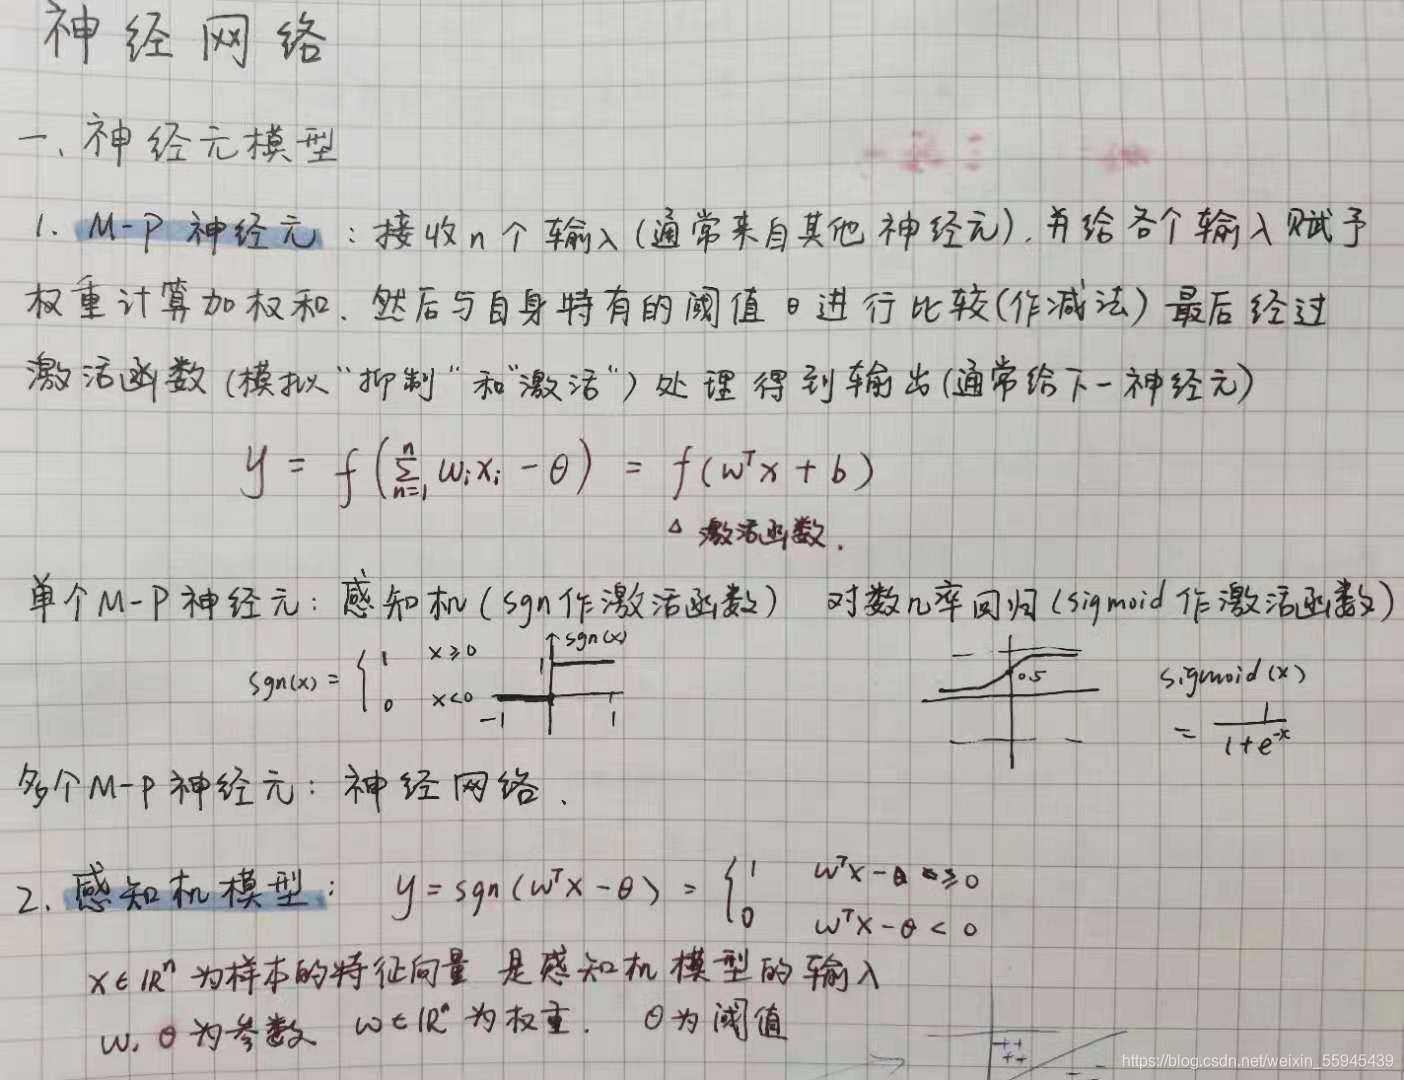 神经网络
一、神经元模型
1. M-P 神经元：接收n个输入(通常来自其他神经元)，并给各个输入赋予
权重计算加权和，然后与自身特有的阈值θ进行比较(作减法)最后经过
激活函数(模拟“抑制”和“激活”)处理得到输出(通常给下一神经元)
y = f(∑ⁿₙ₌₁ wᵢxᵢ - θ) = f(wᵀx + b)
△ 激活函数.
单个M-P神经元：感知机(sgn作激活函数) 对数几率回归(sigmoid作激活函数)
sgn(x) = { 1 x≥0
0 x<0
sgn(x)
1
-1 1
0.5
sigmoid(x)
= 1/(1+e⁻ˣ)
多个M-P神经元：神经网络.
2. 感知机模型： y = sgn(wᵀx - θ) = { 1 wᵀx - θ ≥0
0 wᵀx - θ < 0
x∈ℝⁿ为样本的特征向量 是感知机模型的输入
w, θ为参数 w∈ℝⁿ为权重. θ为阈值
++
++
- -
https://blog.csdn.net/weixin_55945439